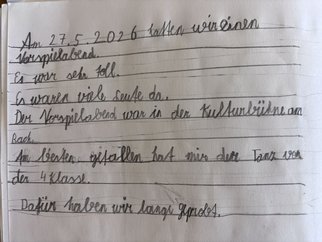 Am 27.5.2026 hatten wir einen
Vorspielabend.
Es war sehr toll.
Es waren viele Leute da.
Der Vorspielabend war in der Kulturbühne am
Bach.
Am besten gefallen hat mir der Tanz von
der 4 Klasse.
Dafür haben wir lange geprobt.